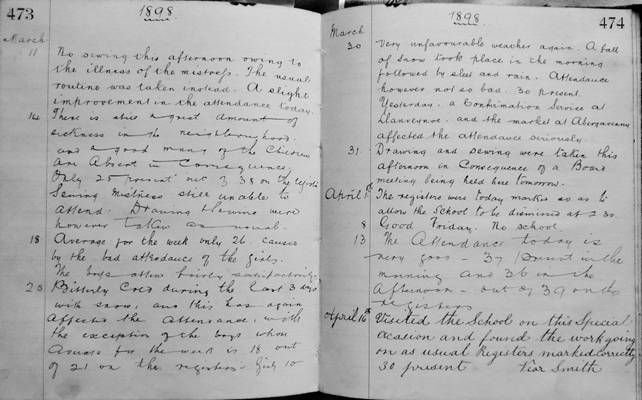 473
1898
March
11
No sewing this afternoon owing to
the illness of the mistress. The usual
routine was taken instead. A slight
improvement in the attendance today.
14 There is still a great amount of
sickness in the neighbourhood.
and a good many of the Children
are Absent in Consequence
Only 25 present out of 38 on the
Sewing Mistress still unable to
attend. Drawing & Sewing were
however taken as usual.
18 Average for the week only 26. caused
by the bad attendance of the girls.
The boys attend fairly satisfactorily.
25 Bitterly Cold during the last 3 days
with snow, and this has again
affected the Attendance, with
the exception of the boys whose
average for the week is 18 out
of 21 on the registers - Girls 10
1898
474
March
30 Very unfavourable weather again. A fall
of snow took place in the morning
followed by sleet and rain. Attendance
however not so bad. 30 present.
Yesterday, a Confirmation Service at
Llanveynoe. and the market at Abergavenny
affected the attendance seriously.
31 Drawing and sewing were taken this
afternoon in Consequence of a Board
meeting being held here tomorrow.
April 1st The registers were today marked so as to
allow the School to be dismissed at 2.30.
8 Good Friday. No school.
13 The Attendance today is
very good - 37 present in the
morning and 36 in the
Afternoon - out of 39 on the
registers
April 16th Visited the School on this Special
occasion and found the work going
on as usual Registers marked correctly
30 present Smith